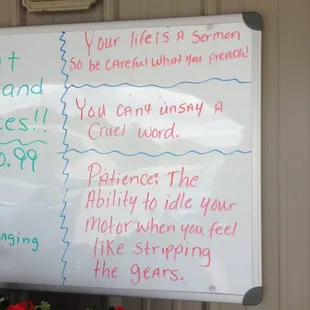 t
and
es!!
0.99
nging
Your life is A Sermon
So be careful what you preach!
You can't unsay a
Cruel word.
Patience: The
Ability to idle your
Motor when you feel
like stripping
the gears.